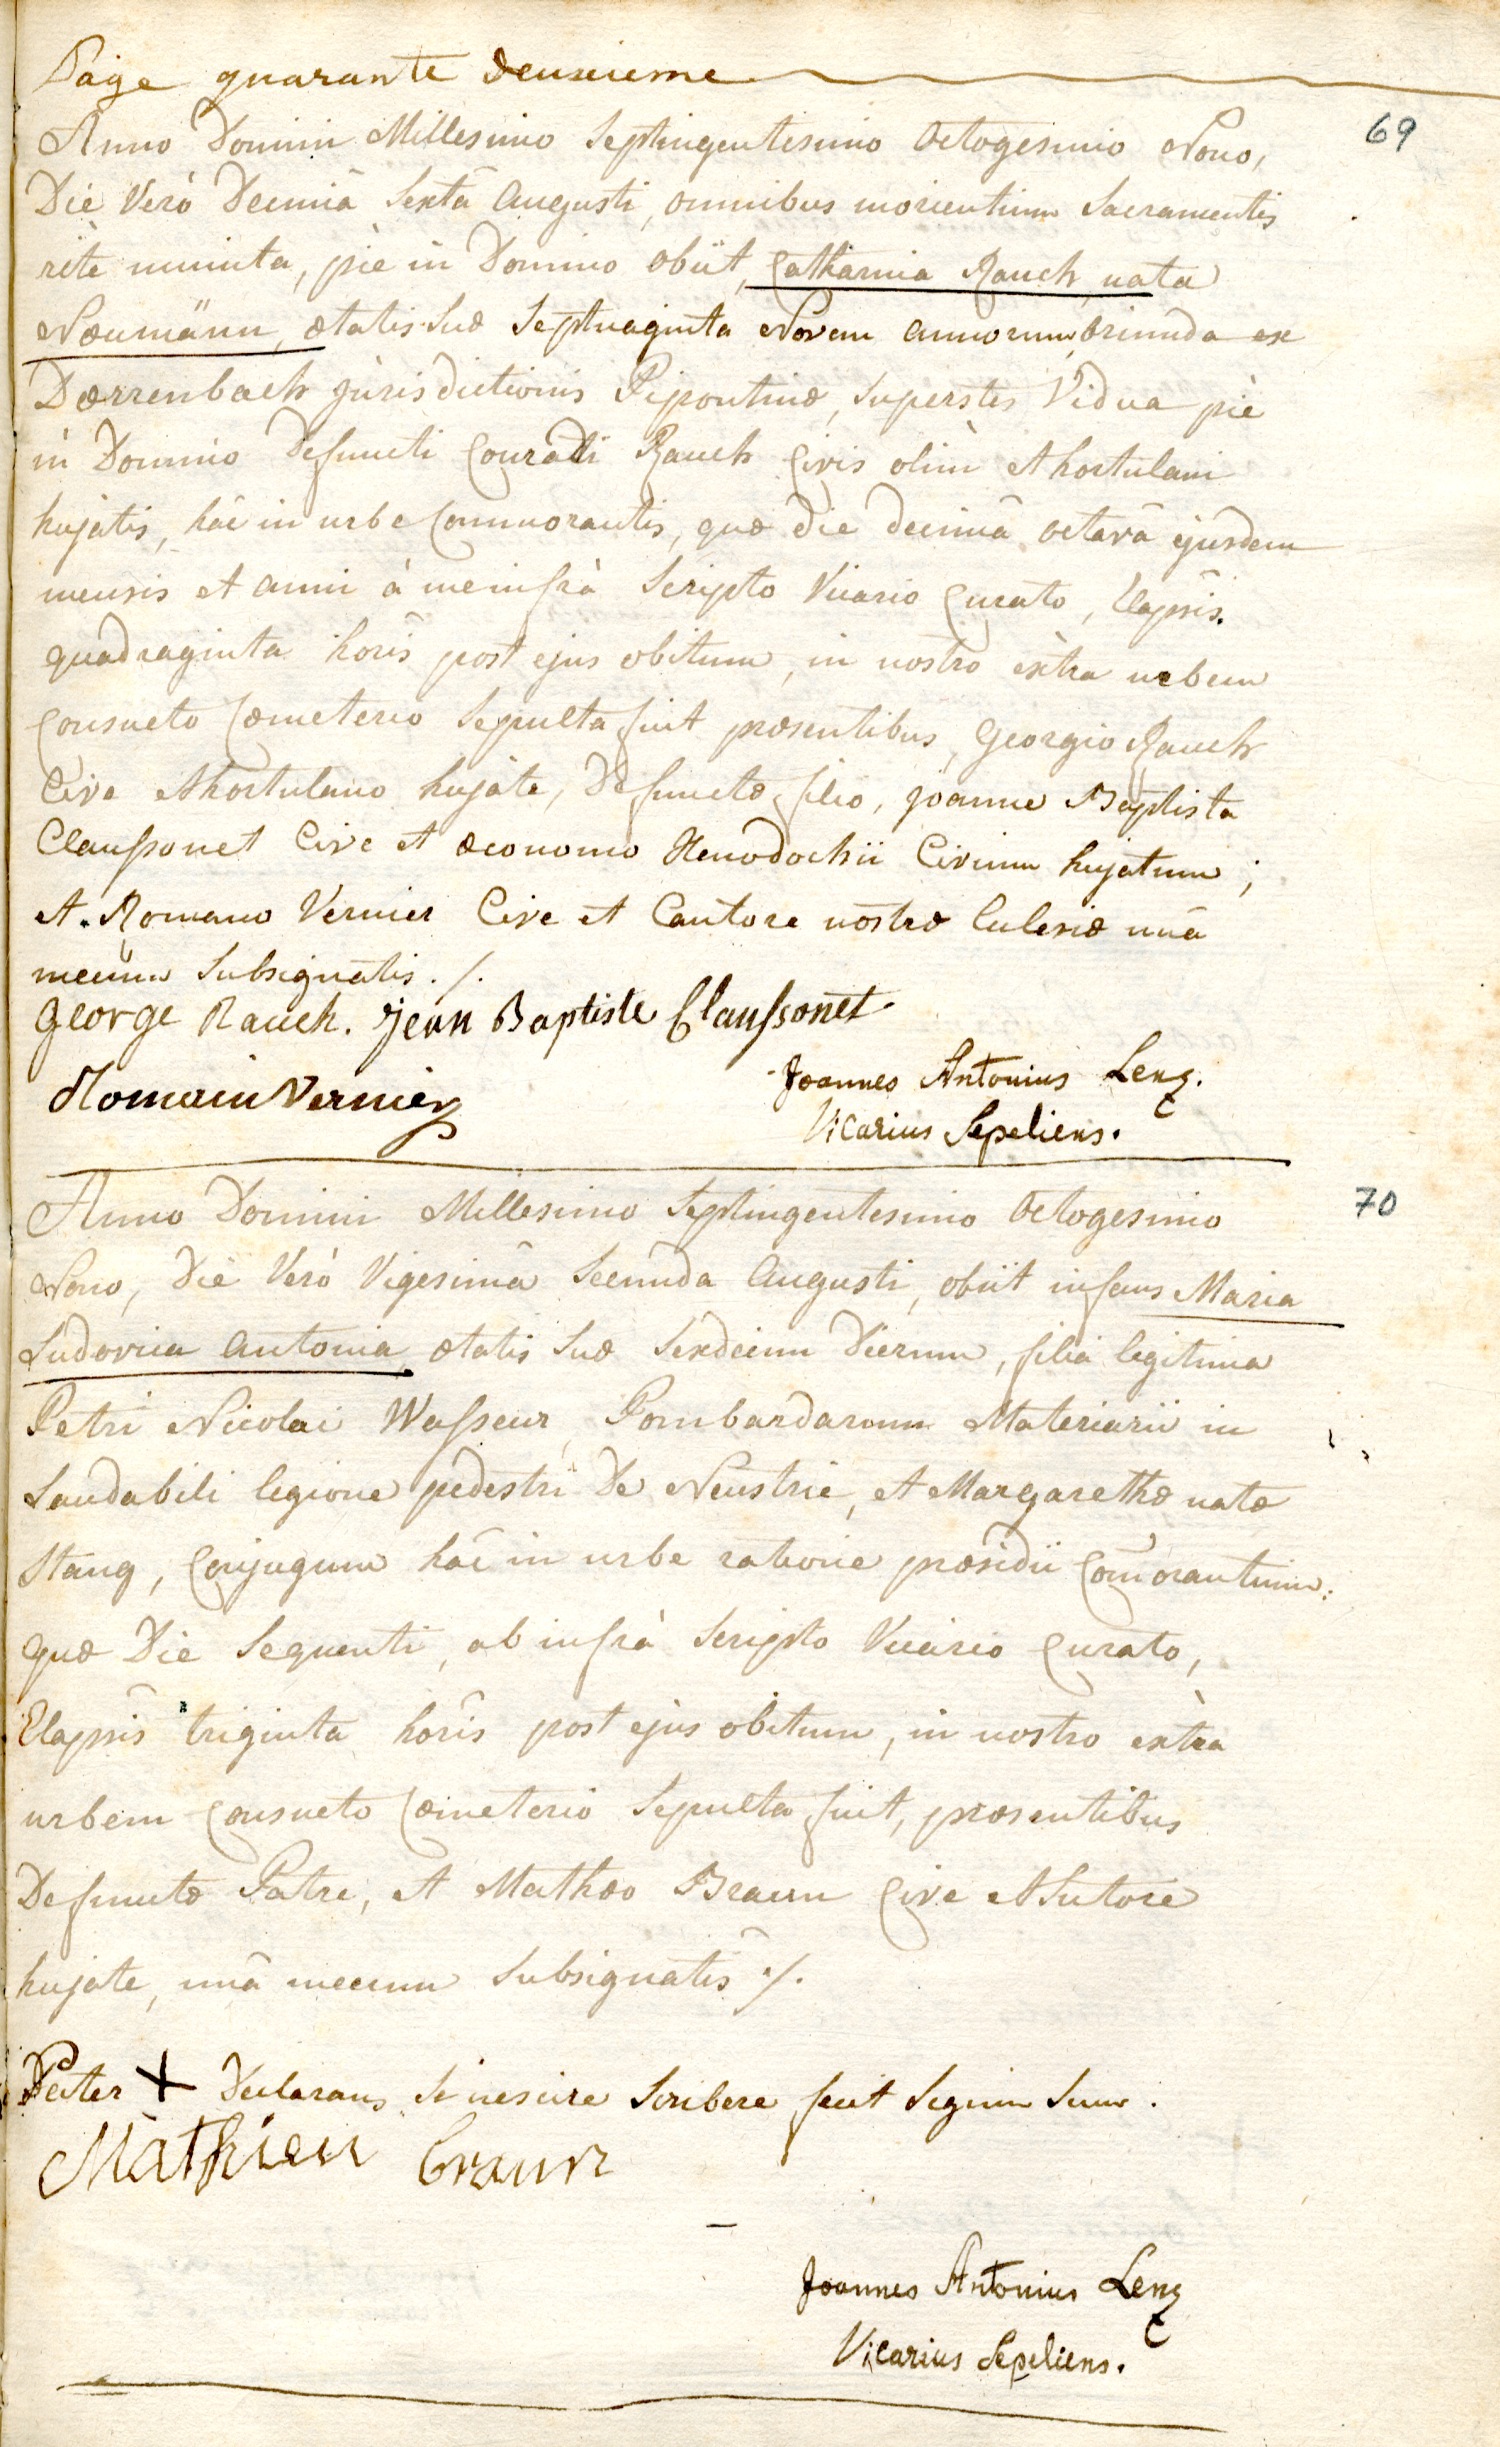 Page quarante deuxieme
Anno Domini Millesimo Septingentesimo Octogesimo Nono,
69
Die Verò Decimâ Sextâ Augusti, omnibus morientium Sacramentis
ritè munita, piè in Domino obiit, Catharina Rauch, nata
Næumänn, ætatis Suæ Septuaginta Novem annorum, oriunda ex
Dærrenbach jurisdictionis Bipontinæ, Superstes Vidua piè
in Domino Defuncti Conradi Rauch Civis olim et hortulani
hujatis, hâc in urbe Commorantis, quæ die decimâ octavâ ejusdem
mensis et anni à me infrà Scripto Vicario Curato, Elapsis
quadraginta horis post ejus obitum, in nostro extra urbem
Consueto Cœmeterio Sepulta fuit præsentibus, Georgio Rauch
Cive et hortulano hujate, Defunctæ filio, joanne Baptista
Claussonet Cive et œconomo Xenodochii Civium hujatum;
et Romano Vernier Cive et Cantore nostræ Eclesiæ unâ
mecum Subsignatis ./.
george Rauch. jean Baptiste Claussonet
Romain Vernier
Joannes Antonius Lenz.
Vicarius Sepeliens.
Anno Domini Millesimo Septingentesimo Octogesimo
70
Nono, Die Verò Vigesimâ Secunda Augusti, obiit infans Maria
Ludovica Antonia, ætatis Suæ Sexdecim Dierum, filia legitima
Petri Nicolai Wasseur, Bombardarum Materiarii in
Laudabili legione pedestri De Neustrie, et Margarethæ natæ
Stang, Conjugum hâc in urbe ratione præsidii Com̄orantium:
quæ Die Sequenti, ab infrà Scripto Vicario Curato,
Elapsis triginta horis post ejus obitum, in nostro extra
urbem Consueto Cœmeterio Sepulta fuit, præsentibus
Defunctæ Patre, et Mathæo Braun Cive et Sutore
hujate, unâ mecum Subsignatis ./.
Pater + Declarans Se nescire Scribere fecit Signum Suum.
Mathieu braun
Joannes Antonius Lenz
Vicarius Sepeliens.